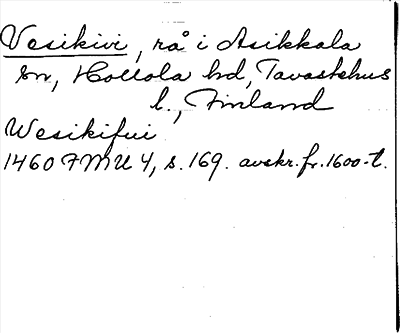 Vesikivi, rå i Asikkala
sn, Hollola hd, Tavastehus
l., Finland
Wesikifui
1460 FMU 4, s. 169. avskr. fr. 1600-t.